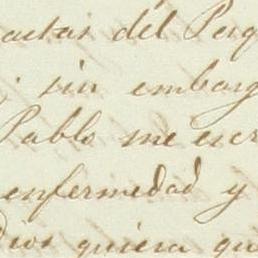 actas del Perq
sin embarg
Pablo me escr
enfermedad y
Dios quiera qu